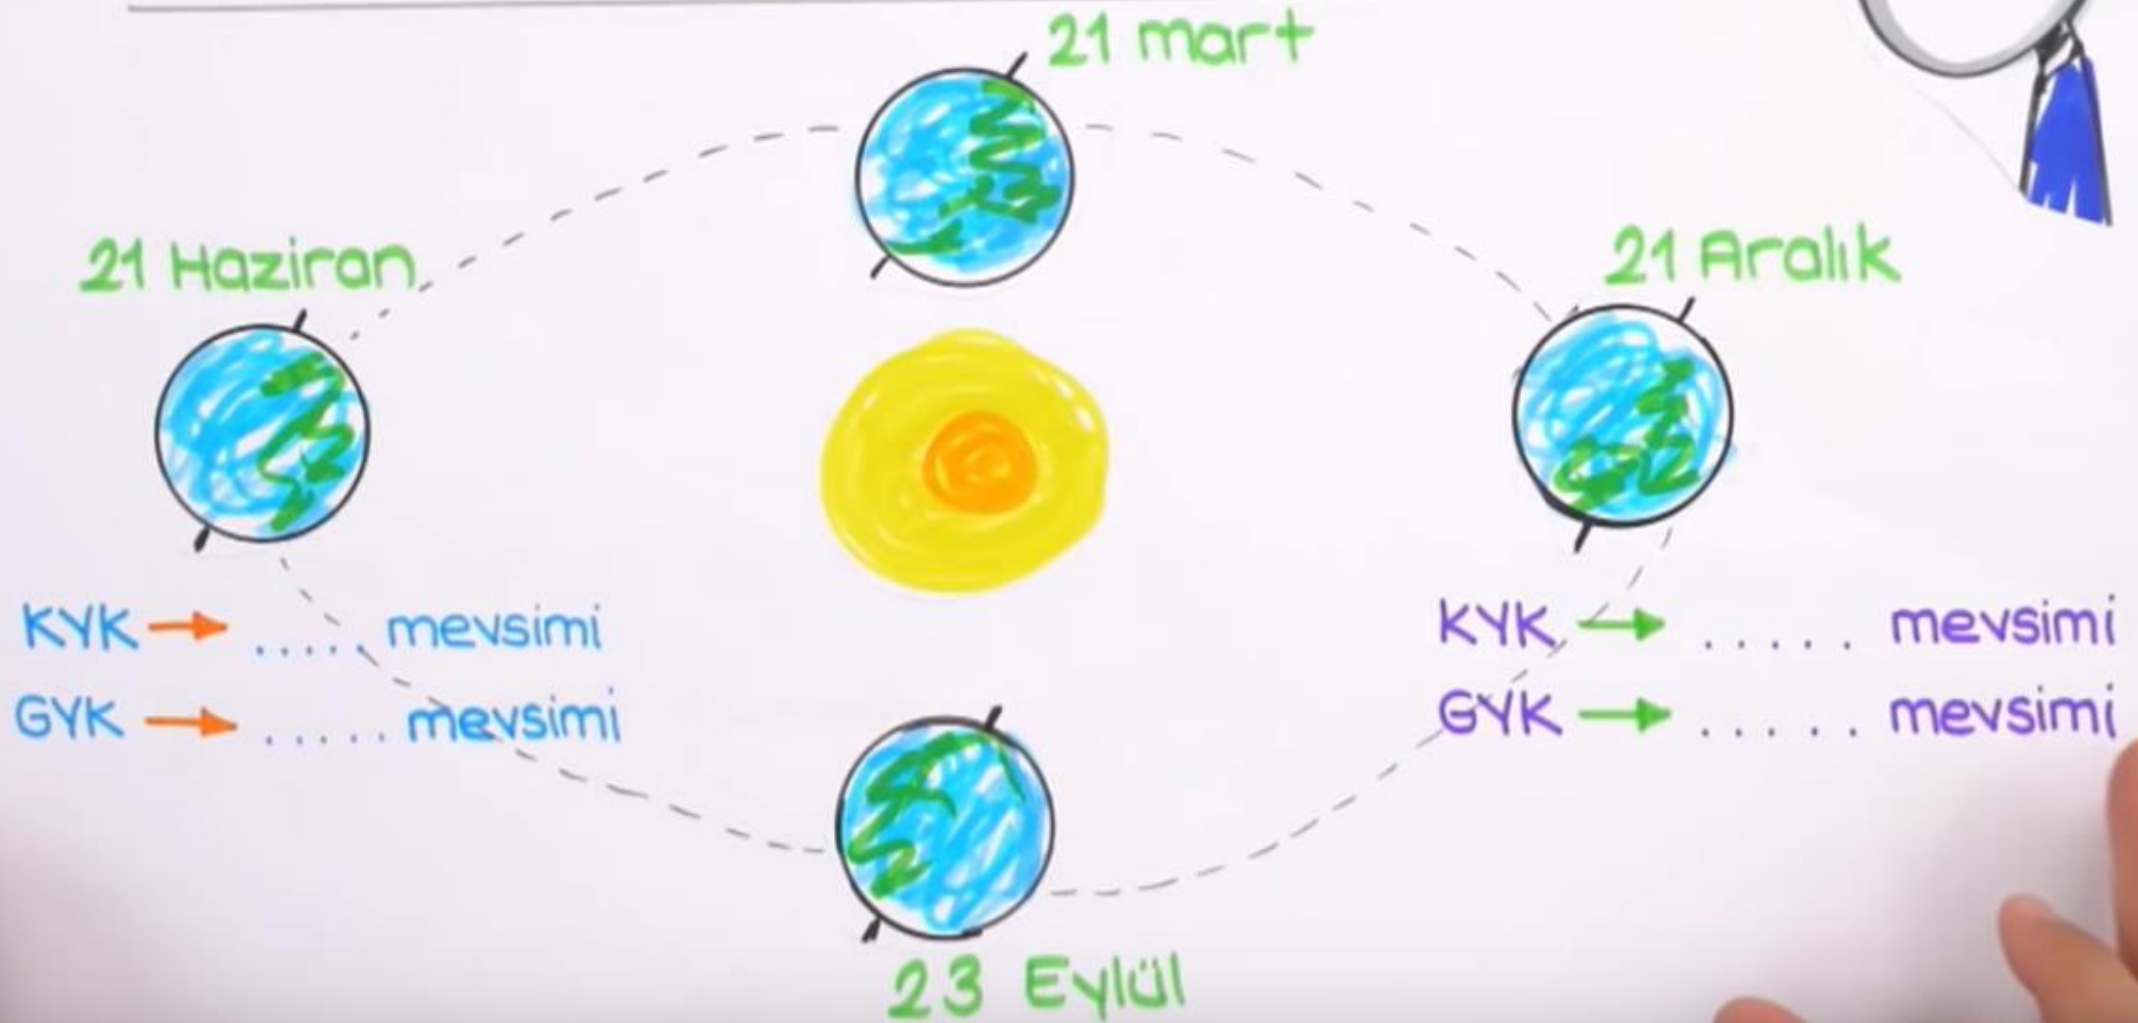 21 mart
21 Haziran
21 Aralık
KYK → ..... mevsimi
GYK → ..... mevsimi
KYK → ..... mevsimi
GYK → ..... mevsimi
23 Eylül